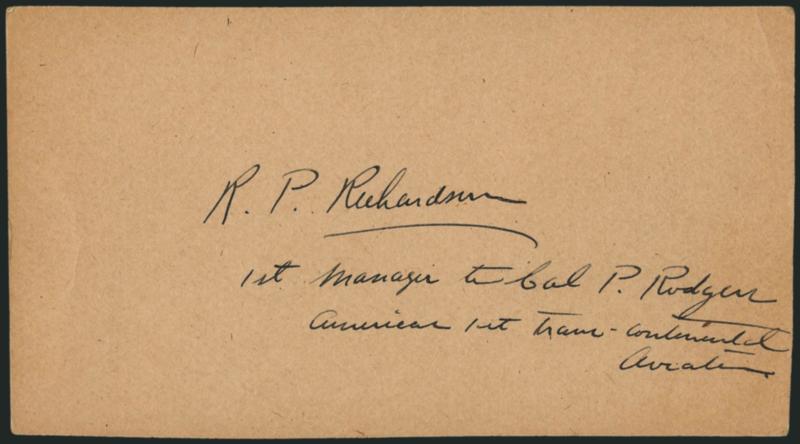 R. P. Richardson
1st Manager to Cal P. Rodgers
American 1st Trans-continental
Aviation